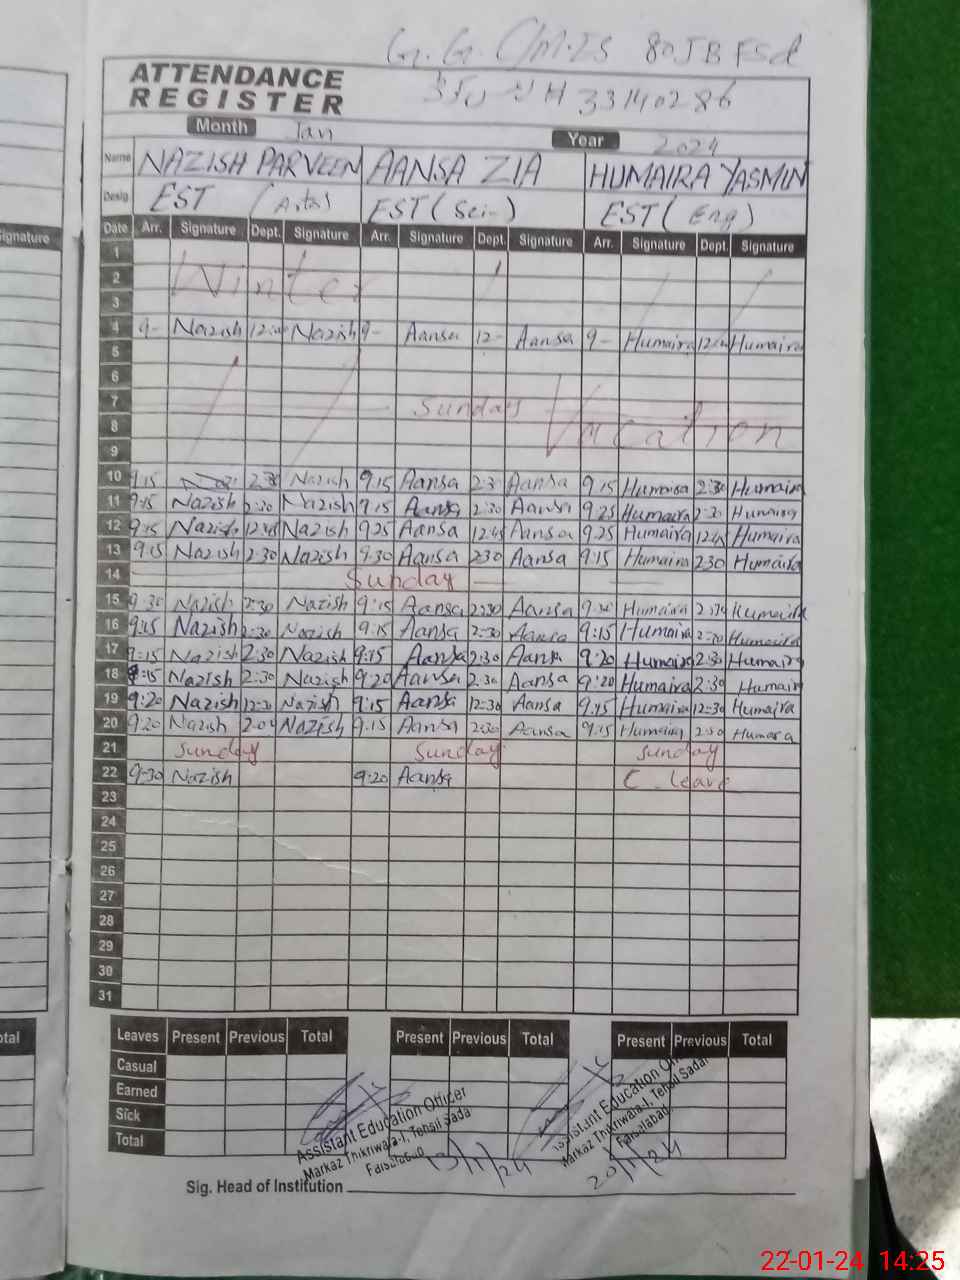 G.G. C/M.ES 80 JB FSd
33140286
ATTENDANCE
REGISTER
Month Jan Year 2024
Name NAZISH PARVEEN AANSA ZIA HUMAIRA YASMIN
Desig EST (Arts) EST (Sci-) EST (Eng)
ignature Date Arr. Signature Dept. Signature Arr. Signature Dept. Signature Arr. Signature Dept. Signature
1
2 Winter
3
4 9- Nazish Nazish 9- Aansa 12- Aansa 9- Humaira Humaira
5
6
7 Sunday
8 Vacation
9
10 9:15 2:30 Nazish 9:15 Aansa 2:30 Aansa 9:15 Humaira 2:30 Humaira
11 9:15 Nazish 2:30 Nazish 9:15 Aansa 2:30 Aansa 9:25 Humaira 2:30 Humaira
12 9:15 Nazish 12:45 Nazish 9:25 Aansa 12:45 Aansa 9:25 Humaira 12:45 Humaira
13 9:15 Nazish 2:30 Nazish 9:30 Aansa 2:30 Aansa 9:15 Humaira 2:30 Humaira
14 Sunday
15 9:30 Nazish 2:30 Nazish 9:15 Aansa 2:30 Aansa Humaira 2:30 Humaira
16 9:15 Nazish 2:30 Nazish 9:15 Aansa 2:30 Aansa 9:15 Humaira Humaira
17 9:15 Nazish 2:30 Nazish 9:15 Aansa 2:30 Aansa 9:20 Humaira 2:30 Humaira
18 9:15 Nazish 2:30 Nazish 9:20 Aansa 2:30 Aansa 9:20 Humaira 2:30 Humaira
19 9:20 Nazish 12:30 Nazish 9:15 Aansa 12:30 Aansa 9:15 Humaira 12:30 Humaira
20 9:20 Nazish Nazish 9:15 Aansa 2:30 Aansa 9:15 Humaira 2:30 Humara
21 Sunday Sunday Sunday
22 9:30 Nazish 9:20 Aansa C. leave
23
24
25
26
27
28
29
30
31
otal Leaves Present Previous Total Present Previous Total Present Previous Total
Casual
Earned
Sick
Total
Assistant Education Officer
Markaz Thikriwala-I, Tehsil Sadar
Faisalabad
13/1/24
Assistant Education Officer
Markaz Thikriwala-I, Tehsil Sadar
Faisalabad
20/1/24
Sig. Head of Institution
22-01-24 14:25